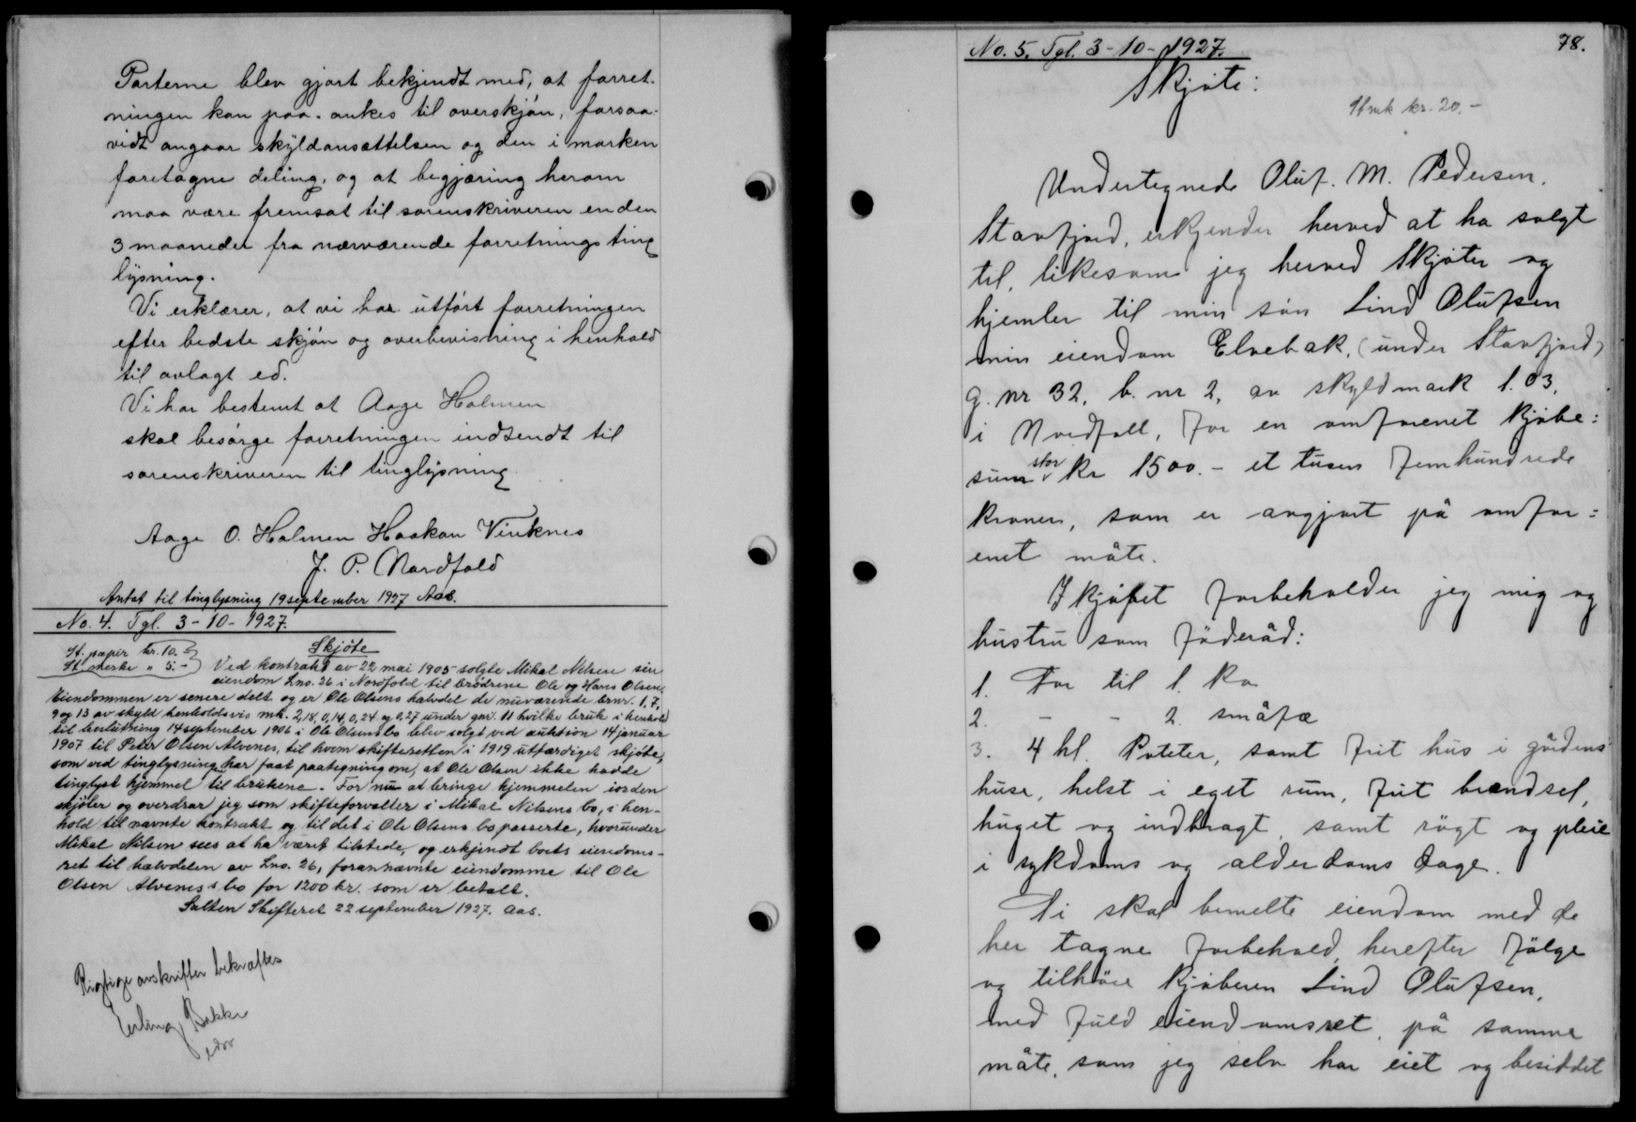 Parterne blev gjort bekjendt med, at forret-
ningen kan paa-ankes til overskjøn, forsaa-
vidt angaar skyldansættelsen og den i marken
foretagne deling, og at begjæring herom
maa være fremsat til sorenskriveren enden
3 maaneder fra nærværende forretnings ting
lysning.
Vi erklærer, at vi har utført forretningen
efter bedste skjøn og overbevisning i henhold
til avlagt ed.
Vi har bestemt at Aage Holmen
skal besørge forretningen indsendt til
sorenskriveren til tinglysning.
Aage O. Holmen Haakon Vinknes
J. P. Nordfold
Antat til tinglysning 19 september 1927 Aas.
No. 4. Tgl. 3-10-1927.
Skjøte
St. papir kr. 10.-
St. merke " 5.-
Ved kontrakt av 22 mai 1905 solgte Mikal Nilsen sin
eiendom Lno. 26 i Nordfold til brødrene Ole og Hans Olsen.
Eiendommen er senere delt og er Ole Olsens halvdel de nuværende brnr. 1, 7,
9 og 13 av skyld henholdsvis mk. 2,18, 0,14, 0,24 og 0,27 under gnr. 11 hvilke bruk i henhold
til beslutning 14 september 1906 i Ole Olsens bo blev solgt ved auktion 14 januar
1907 til Peder Olsen Alvenes, til hvem skifteretten i 1919 utfærdiget skjøte,
som ved tinglysning har faat paategning om, at Ole Olsen ikke hadde
tinglyst hjemmel til brukene. For nu at bringe hjemmelen iorden
skjøter og overdrar jeg som skifteforvalter i Mikal Nilsens bo, i hen-
hold til nævnte kontrakt og til det i Ole Olsens bo passerte, hvorunder
Mikal Nilsen sees at ha været tilstede, og erkjendt boets eiendoms-
ret til halvdelen av Lno. 26, forannævnte eiendomme til Ole
Olsen Alvenes's bo for 1200 kr. som er betalt.
Salten Skifteret 22 september 1927. Aas.
Rigtige avskrifter bekræftes
Erling Bakke
edsv
No. 5. Tgl. 3-10-1927.
78.
Skjøte:
St mk kr. 20.-
Undertegnede Oluf. M. Pedersen.
Stavfjord, erkjender herved at ha solgt
til, likesom jeg herved Skjøter og
hjemler til min søn Lind Olufsen
min eiendom Elvebak, (under Stavfjord)
g. nr 32, b. nr 2, av skyldmark 1.03,
i Nordfold, for en omforenet kjøbe:
sum stor kr 1500.- et tusen femhundrede
kroner, som er avgjort på omfor:
enet måte.
I kjøpet forbeholder jeg mig og
hustru som føderåd:
1. For til 1. ko
2. - - 2 småfæ
3. 4 hl. Poteter, samt frit hus i gårdens
huse, helst i eget rum, frit brændsel,
huget og indbragt, samt røgt og pleie
i sykdoms og alderdoms dage.
Ti skal bemelte eiendom med de
her tagne forbehold, herefter følge
og tilhøre kjøberen Lind Olufsen,
med fuld eiendomsret, på samme
måte, som jeg selv har eiet og besiddet